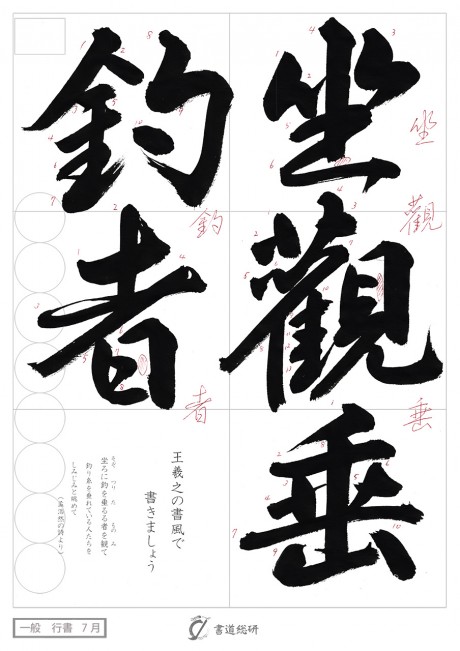 坐觀垂
釣者
坐
觀
垂
釣
者
王羲之の書風で
書きましょう
そぞ つり た もの み
坐ろに釣を垂るる者を観て
釣り糸を垂れている人たちを
しみじみと眺めて
(孟浩然の詩より)
一般 行書 7月
書道総研